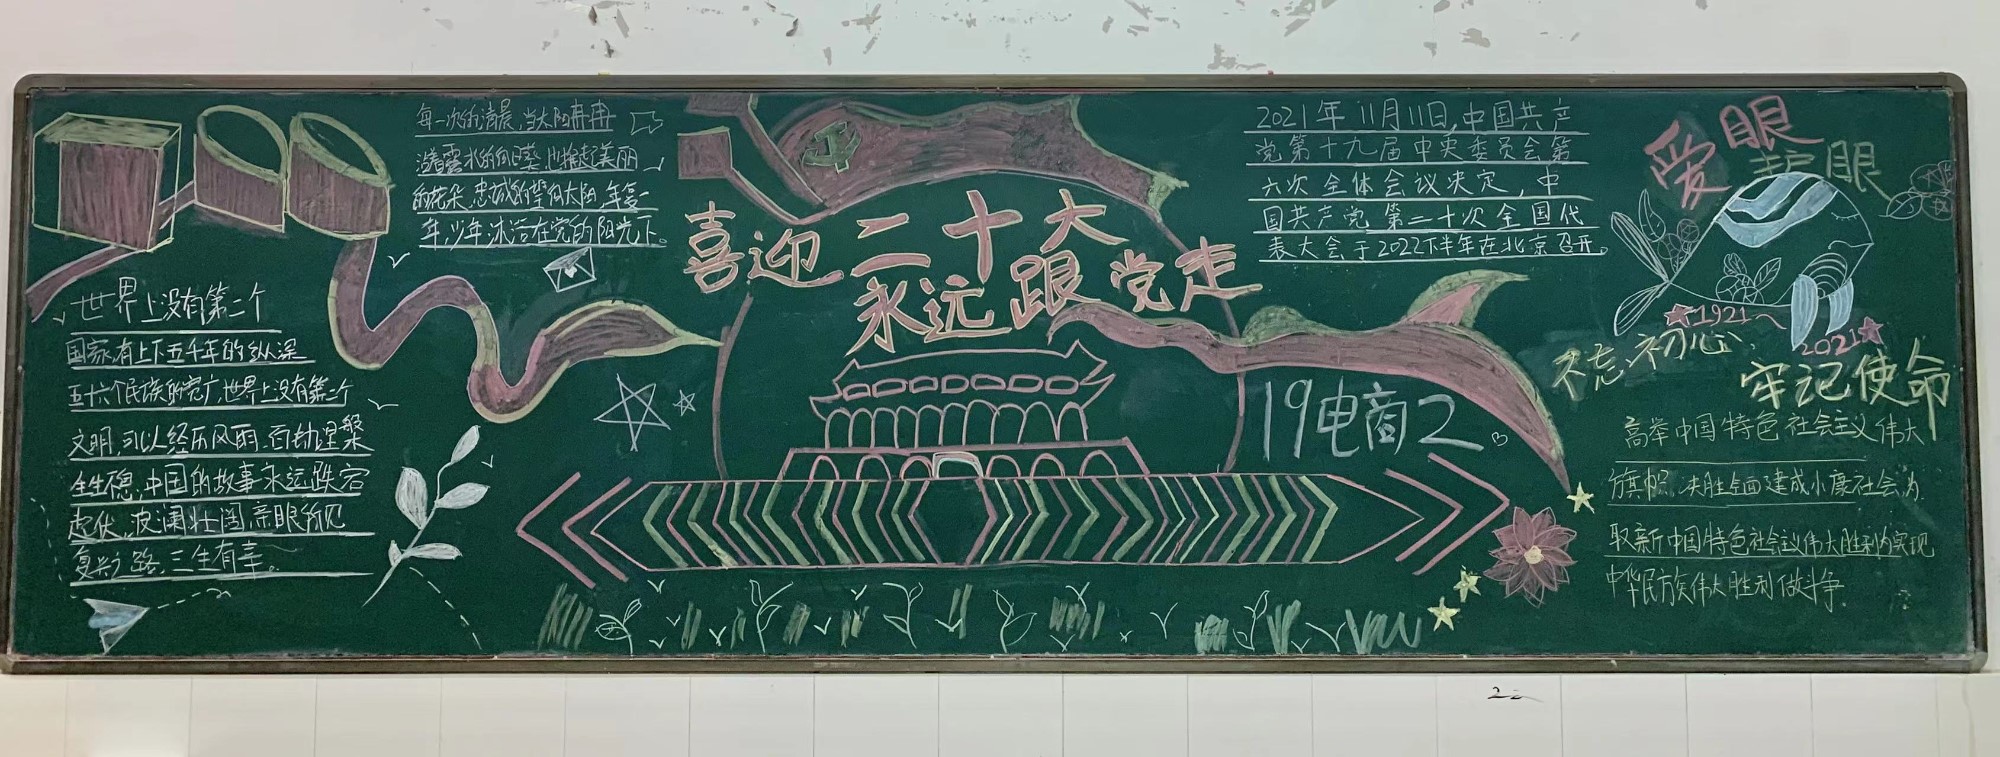 每一次的清晨,当太阳冉冉
沾着露水的向日葵,也捧起美丽
的花朵,忠诚的望向太阳,年复一
年,少年沐浴在党的阳光下。
喜迎二十大
永远跟党走
2021年11月11日,中国共产
党第十九届中央委员会第
六次全体会议决定,中
国共产党第二十次全国代
表大会于2022下半年在北京召开。
爱眼
护眼
1921~
2021
不忘初心、
牢记使命
世界上没有第二个
国家,有上下五千年的纵深
五十六个民族的宽广,世界上没有第二个
文明,可以经历风雨而劫涅槃
生生德,中国的故事永远跌宕
起伏,波澜壮阔,亲眼所见
复兴之路,三生有幸。
19电商2
高举中国特色社会主义伟大
旗帜,决胜全面建成小康社会为
取新中国特色社会主义伟大胜利为实现
中华民族伟大胜利做斗争